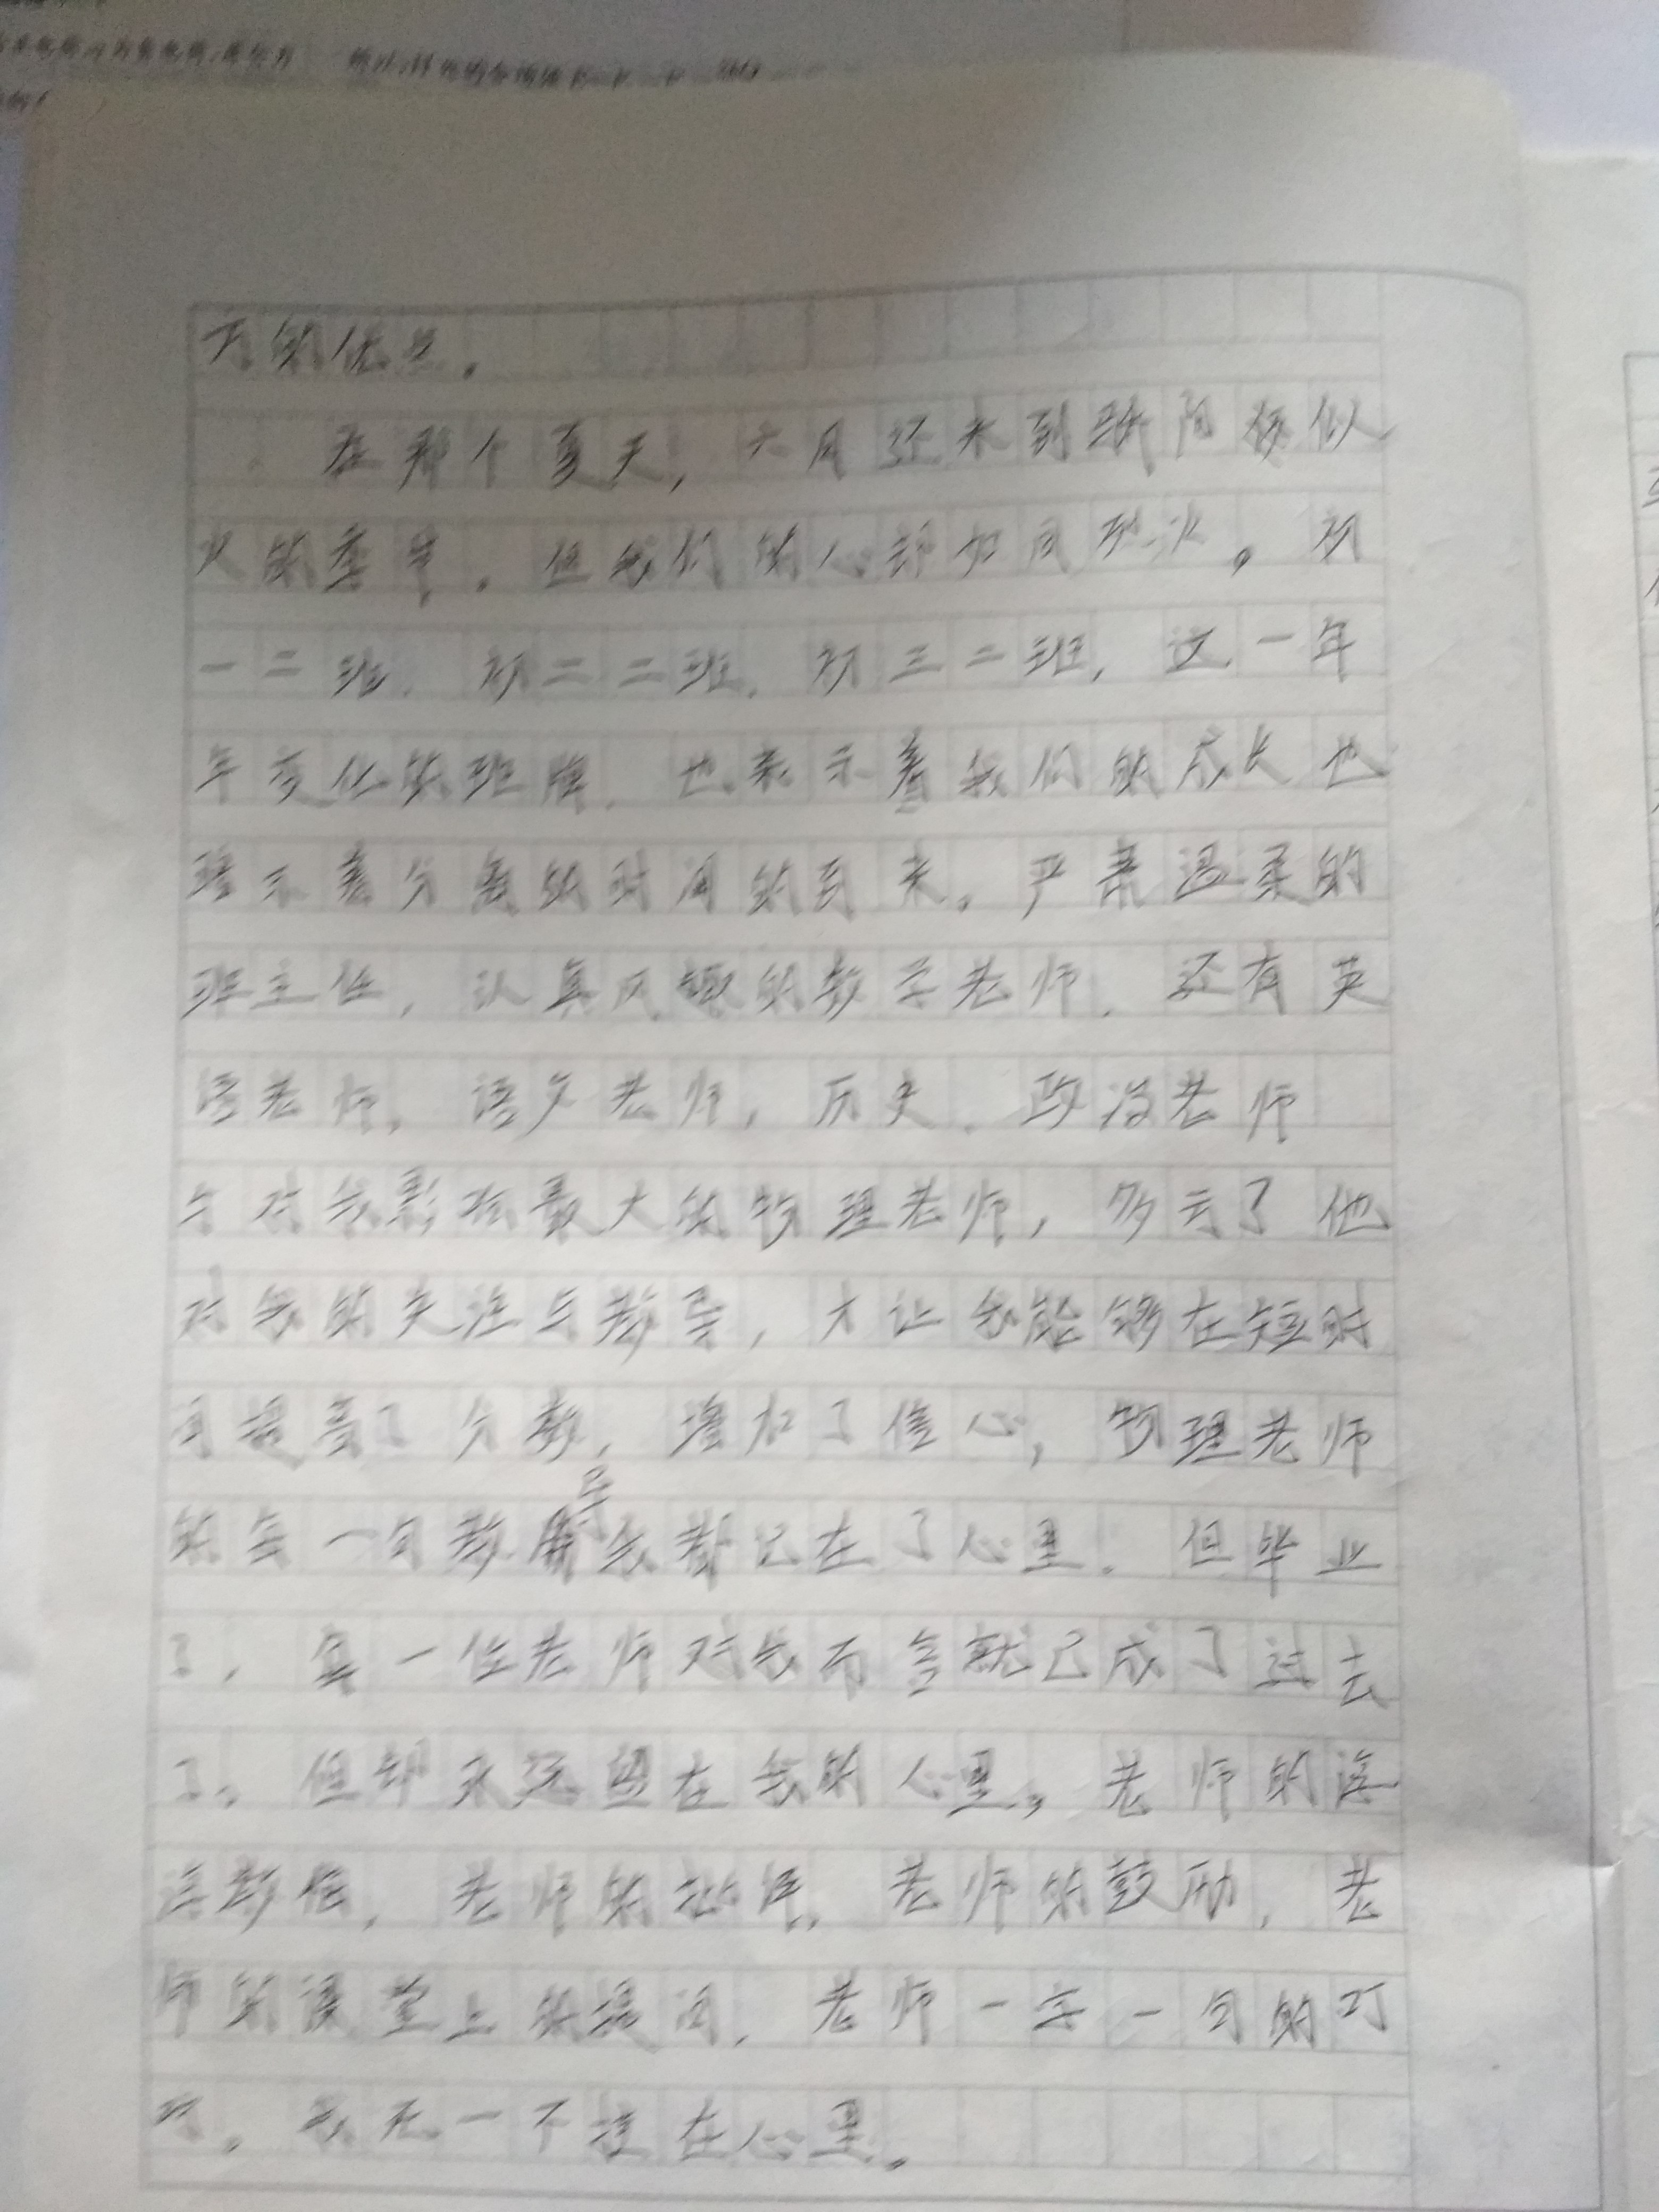 下的任务。
在那个夏天,六月还未到骄阳似
火的季节,但我们的心却如同烈火。初
一二班、初二二班、初三二班,这一年
年变化的班牌,也表示着我们的成长也
暗示着分离的时间的到来。严肃温柔的
班主任,认真风趣的数学老师,还有英
语老师,语文老师,历史、政治老师
与对我影响最大的物理老师,多亏了他
对我的关注与教导,才让我能够在短时
间提高了分数,增加了信心,物理老师
的每一句教导我都记在了心里。但毕业
了,每一位老师对我而言就已成了过去
了。但却永远留在我的心里。老师的谆
谆教侮,老师的批评,老师的鼓励,老
师的课堂上的提问,老师一字一句的叮
咛,我无一不记在心里。